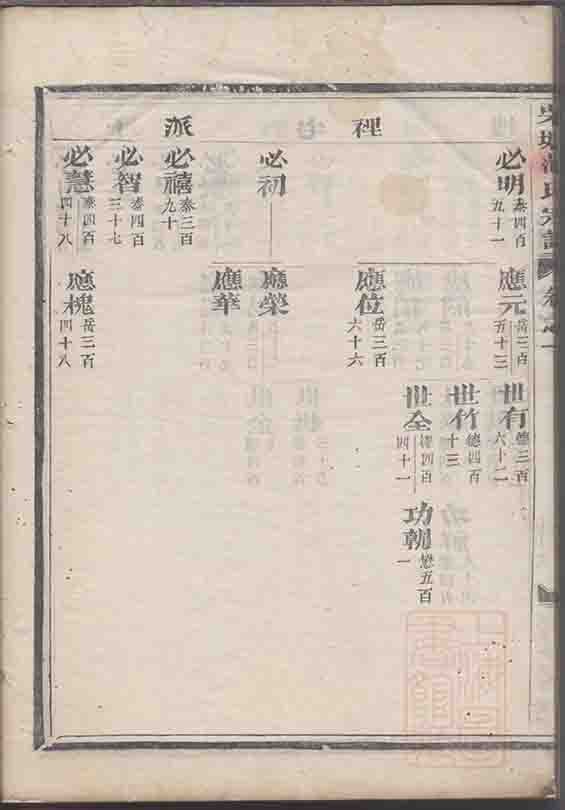 氏宗譜 卷之一
裡
派
必明 泰四百九十一
應元 岳三百五十三
世有 德三百六十二
世竹 德四百十三
世全 德四百四十一
功朝 懋五百一
應位 岳三百六十六
必初
應榮
應華
必禧 泰三百九十
必智 泰四百三十七
必慧 泰四百四十八
應槐 岳三百四十八